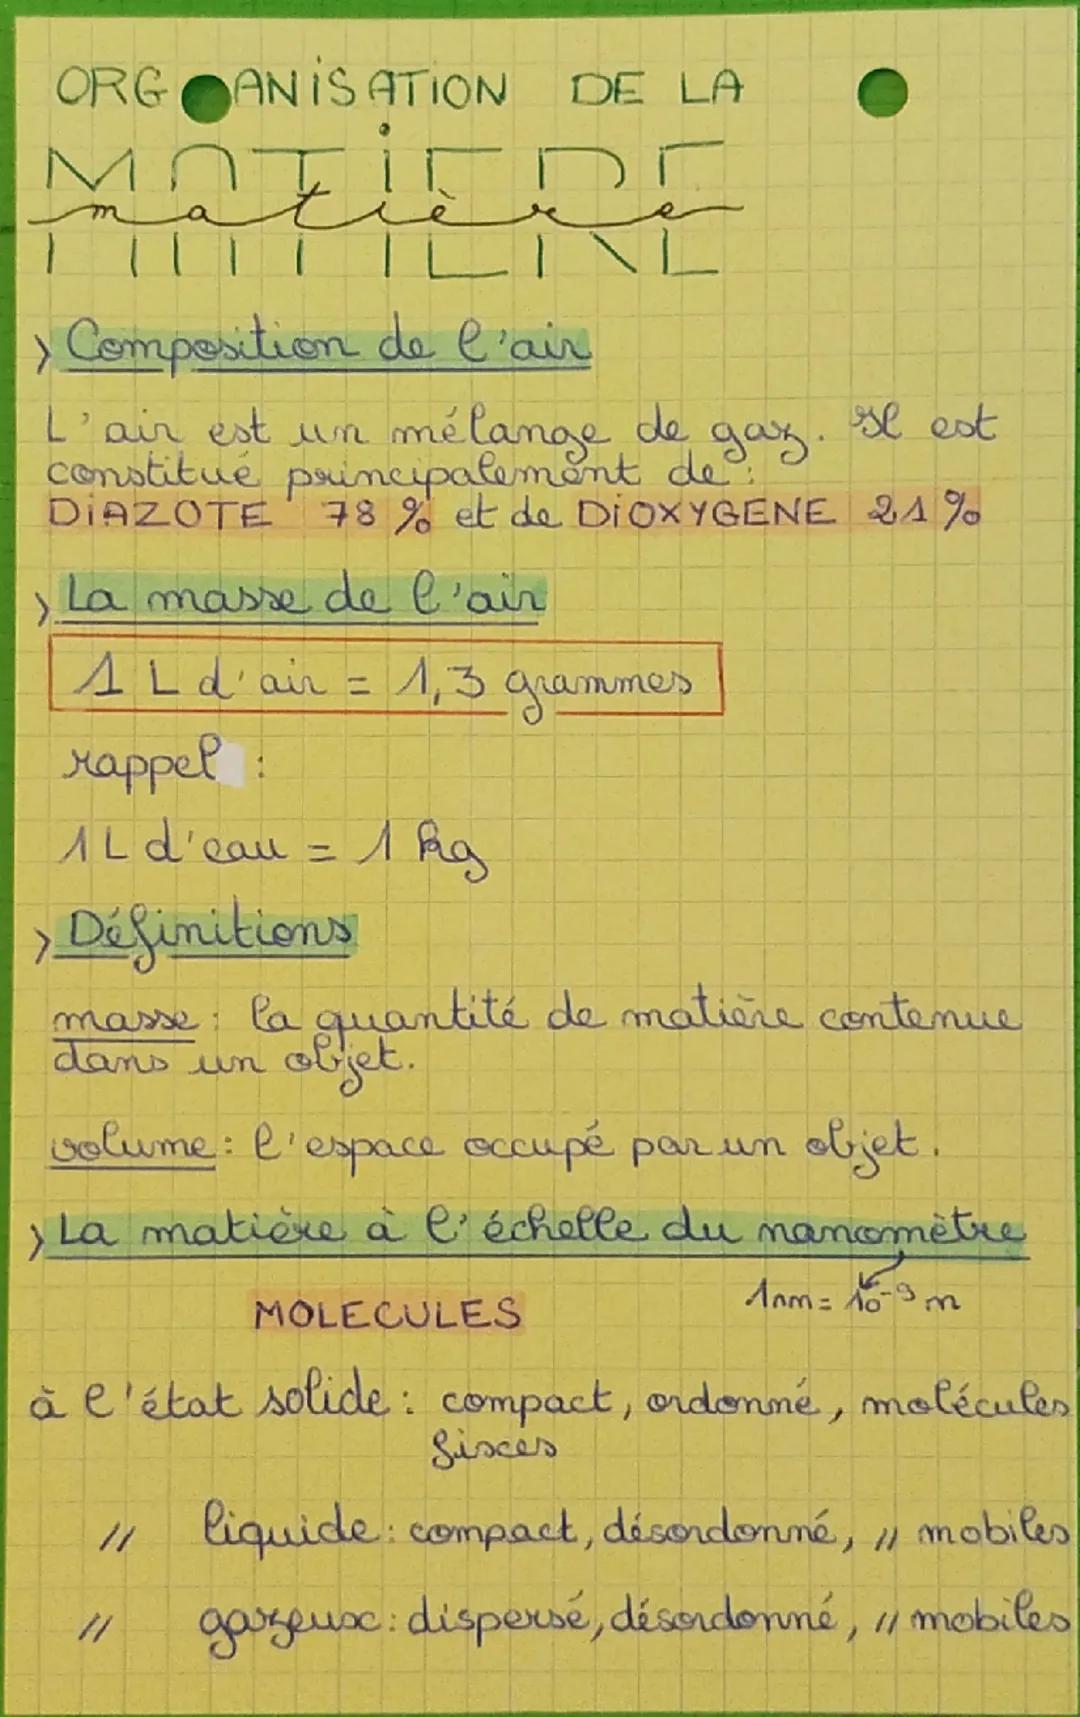 ORGANiSATiON DE LA
MATiERE
matière
> Composition de l'air
L'air est un mélange de gaz. Il est
constitué principalement de :
DiAZOTE 78 % et de DiOXYGENE 21 %
> La masse de l'air
1 L d'air = 1,3 grammes
rappel :
1 L d'eau = 1 kg
> Définitions
masse : la quantité de matière contenue
dans un objet.
volume : l'espace occupé par un objet.
> La matière à l'échelle du nanomètre
1nm = 10⁻⁹ m
MOLECULES
à l'état solide : compact, ordonné, molécules
fixes
// liquide : compact, désordonné, // mobiles
// gazeux : dispersé, désordonné, // mobiles